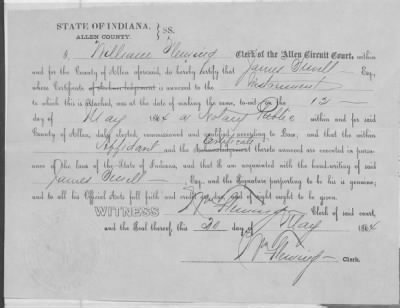 STATE OF INDIANA,
ALLEN COUNTY. } SS.
I, William Fleming Clerk of the Allen Circuit Court, within
and for the County of Allen aforesaid, do hereby certify that James Esq.,
whose Certificate of is annexed to the Instrument
to which this is attached, was at the date of making the same, to-wit: on the 12
day of May 1864 a Notary Public within and for said
County of Allen, duly elected, commissioned and qualified according to Law, and that the within
Affidavit and the Certificate thereto annexed are executed in pursu-
ance of the laws of the State of Indiana, and that I am acquainted with the handwriting of said
James Esq., and the Signature purporting to be his is genuine;
and to all his Official Acts full faith and credit are due and of right ought to be given.
WITNESS Wm Fleming Clerk of said court,
and the Seal thereof, this 20 day of May 1864
Wm Fleming
Clerk.